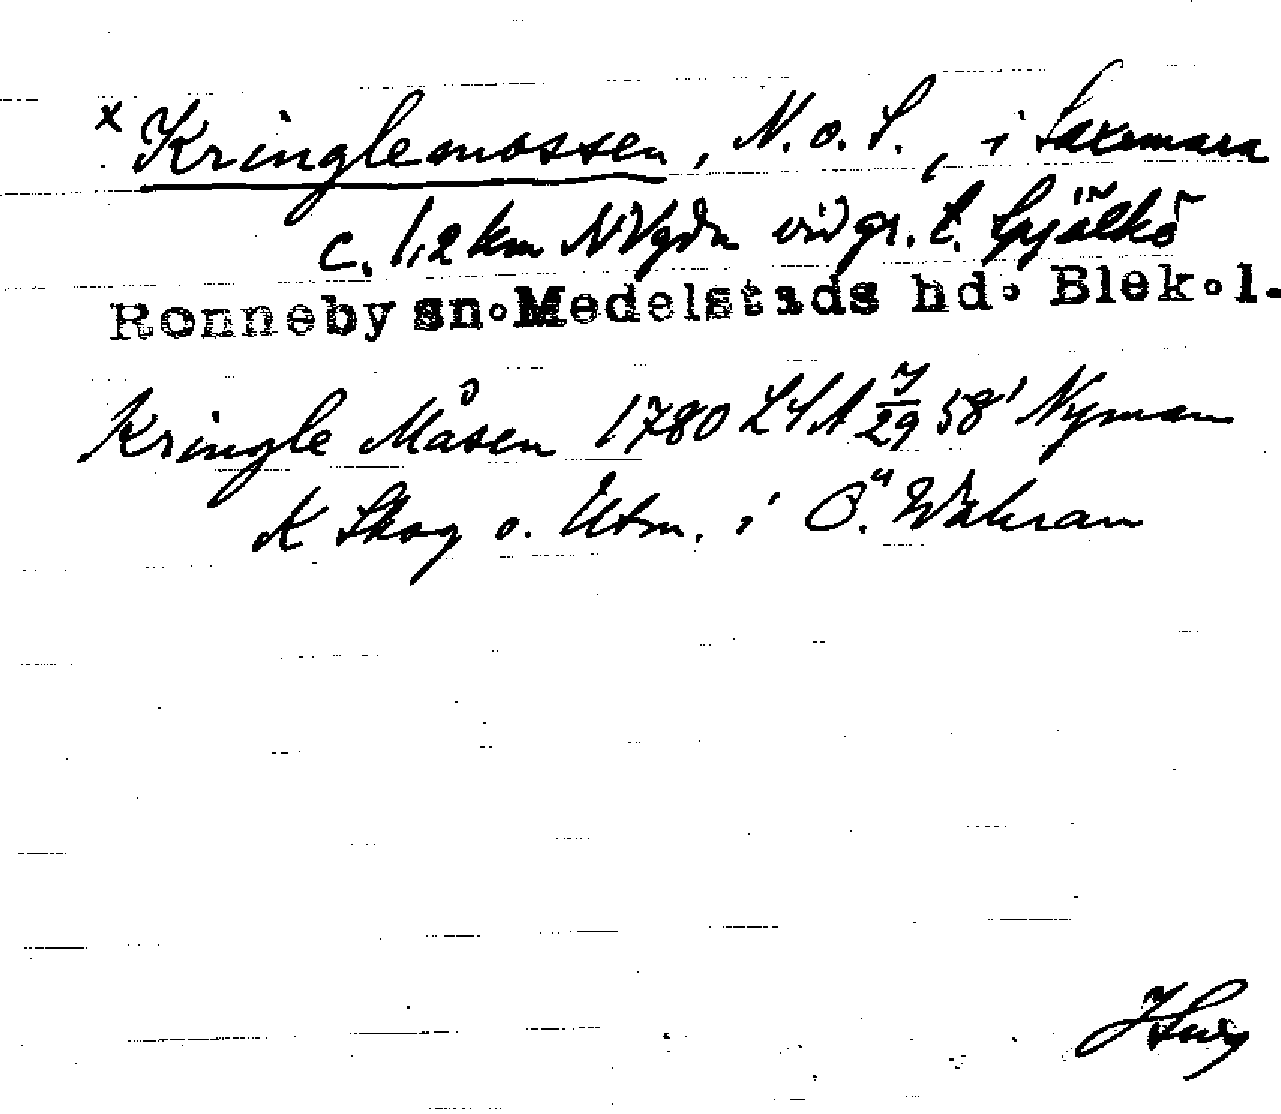 x Kringlemossen, N. o. S., i Saxemara
c. 1,2 km NV gdn vid gr. t. Gjälkö
Ronneby sn. Medelstads hd. Blek. l.
Kringle Måsen 1780 LSA 7/29 58' Nyman
K Skog o. Utm. i Ö. Wåhran